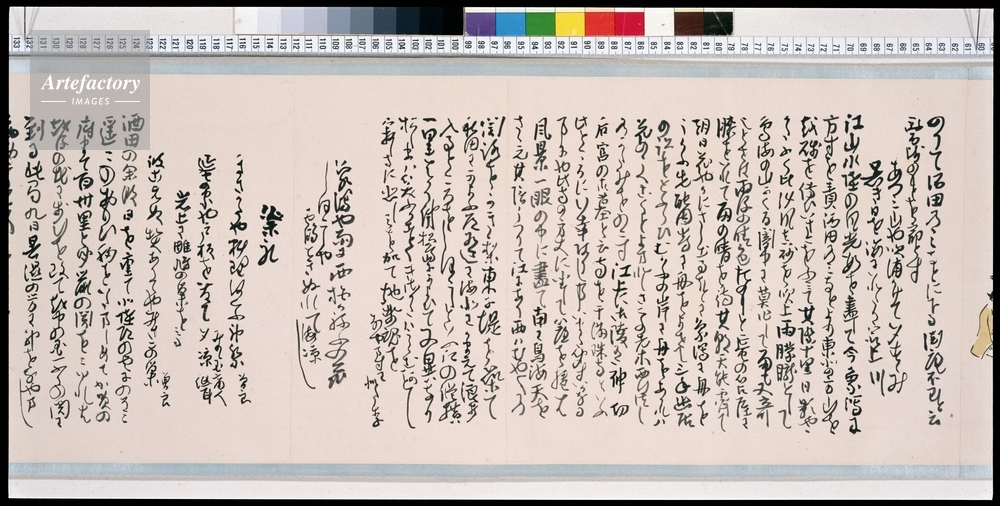 のつて酒田のミなとに下る淵庵不玉と云
醫師の許を宿とす
あつミ山や吹浦かけて夕すゝみ
暑き日を海にいれたり最上川
江山水陸の風光数を盡して今象潟に
方寸を責酒田のみなとより東北の方山を
越礒を傳ひいさこをふミて其際十里日影やゝ
かたふく比汐風真砂を吹上雨朦朧として
鳥海の山かくる闇中に莫作して雨も又奇
也とせは雨後の晴色又たのもしきと蜑の苫屋に
膝をいれて雨の晴を待其朝天能霽て
朝日花やかにさし出るほとに象潟に舟を
うかふ先能因嶋に舟をよせて三年幽居
の跡をとふらひむかふの岸に舟をあかれは
花の上こくとよまれし桜の老木西行法し
のかたミをのこす江上に御陵あり神功
后宮の御墓と云寺を干満珠寺といふ
此ところに行幸ありし事いまた聞すいかなる
事にや此寺の方丈に坐して簾を捲は
風景一眼の中に盡て南に鳥海天を
さゝえ其陰うつりて江にあり西ハむや〱の
関路をかきり東に堤を築て
秋田にかよふ道遥に海北にかまえて浪打
入るゝところを汐こしといふ江の縦横
一里はかり俤松嶋にかよひて又異なり
松しまハ笑ふかことく象潟ハうらむかことし
寂しさに悲しミを加て地勢魂を
なやますに似たり
象潟や雨に西施かねふの花
汐こしや
鶴はきぬれて海凉し
祭礼
きさかたや料理何くふ神祭 曽良
蜑の家や戸板を敷て夕凉 みのゝ国商人 低耳
岩上に雎鳩の巣を見る
波こえぬ契ありてやみさこの巣 曽良
酒田の余波日を重て北陸道の雲に
遥〱のおもひ胸をいたましめて加賀の
府まて百卅里と聞鼠の関をこゆれは
越後の地に歩行を改て越中の国一ふりの関に
到る此間九日暑湿の労に神をなやまし
Artefactory
IMAGES